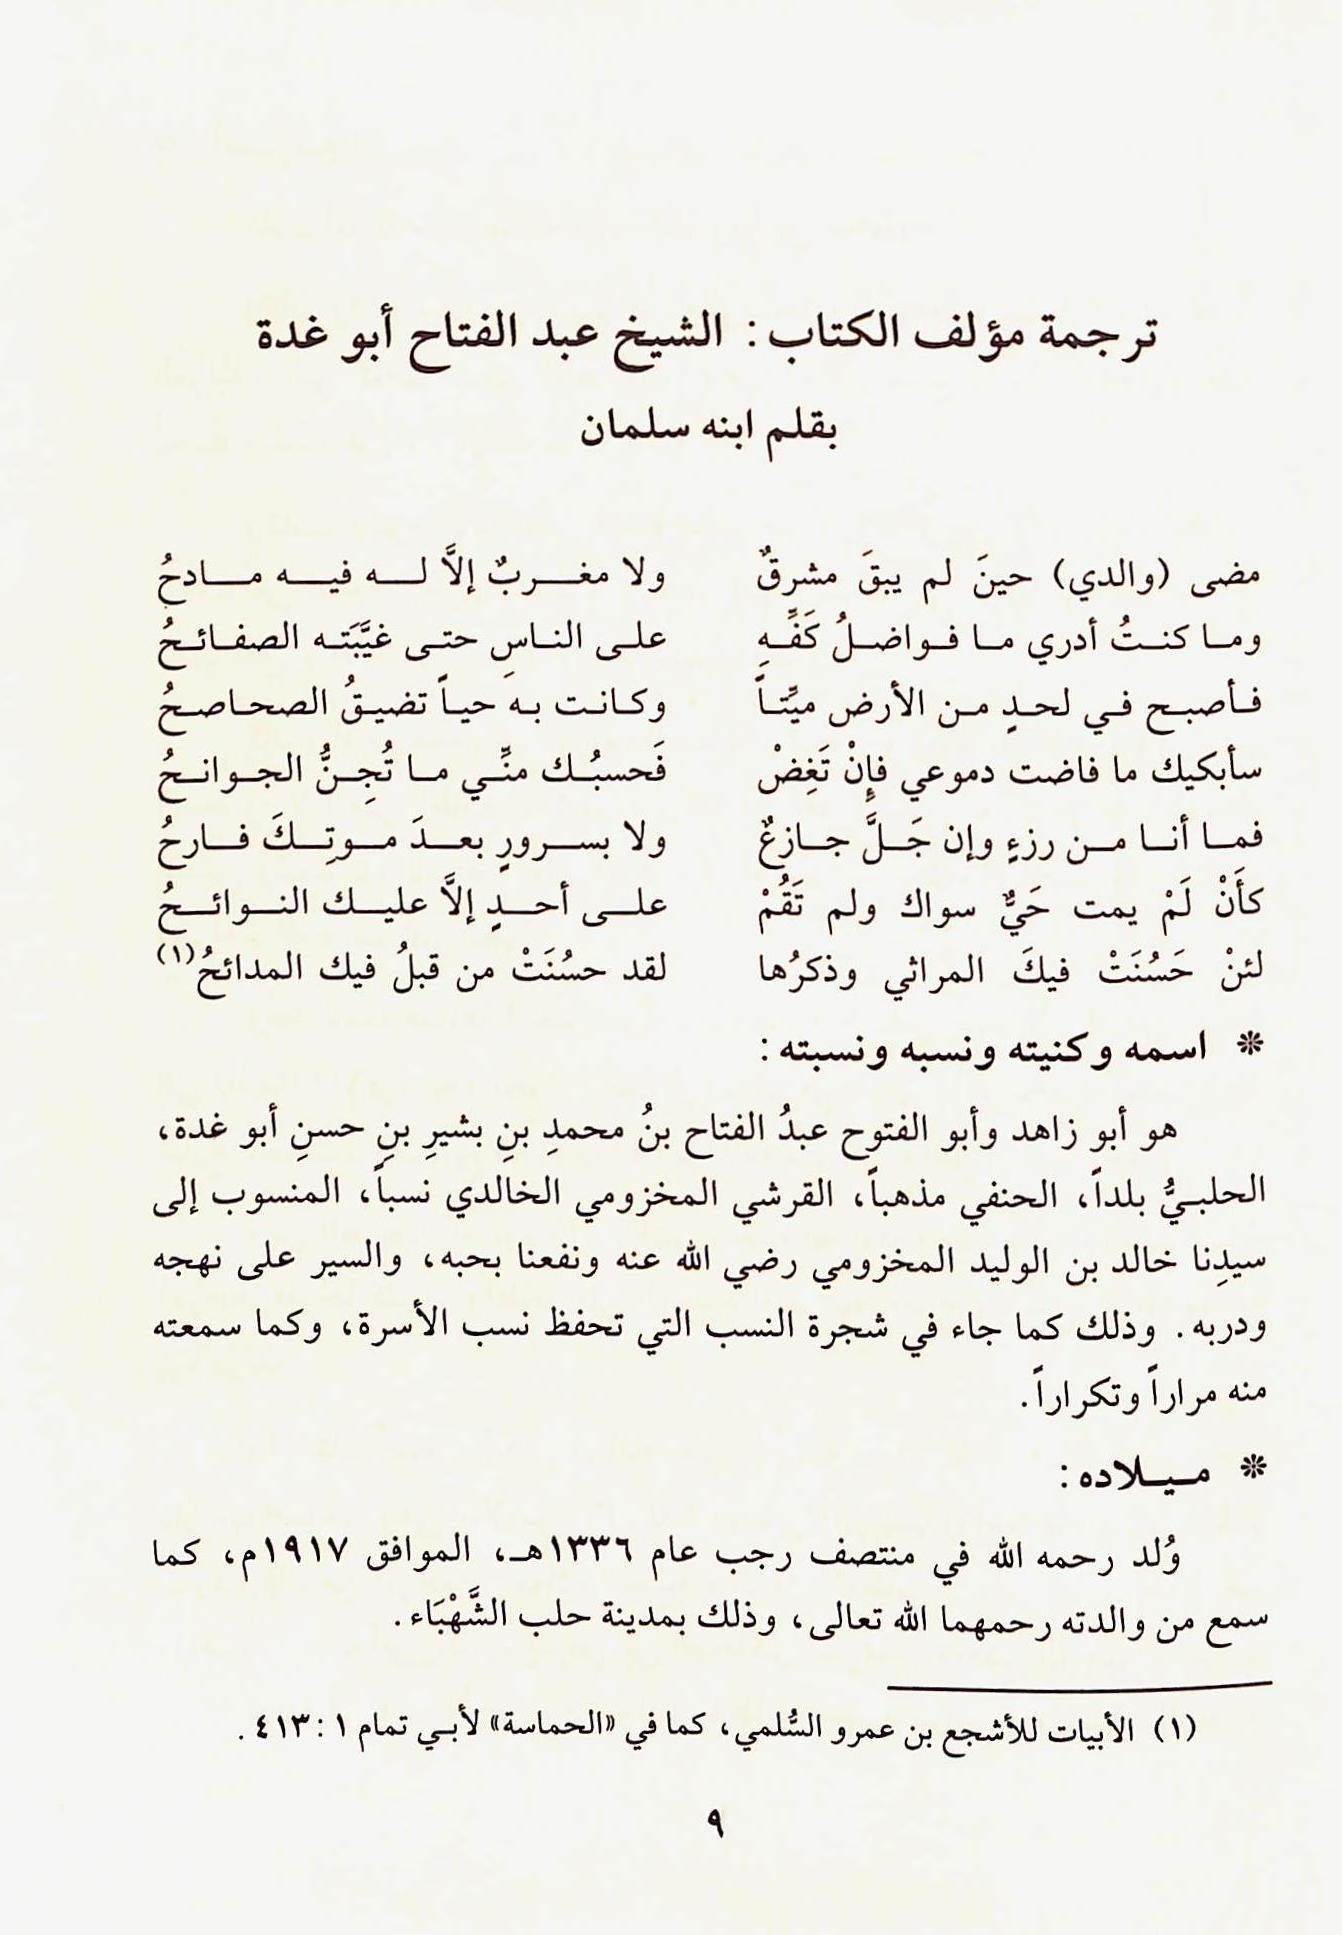 ترجمة مؤلف الكتاب : الشيخ عبد الفتاح أبو غدة
بقلم ابنه سلمان
مضى (والدي) حينَ لم يبقَ مشرقٌ ولا مغربٌ إلاَّ له فيه مادحُ
وما كنتُ أدري ما فواضلُ كَفِّهِ على الناسِ حتى غيَّبَته الصفائحُ
فأصبح في لحدٍ من الأرض ميِّتاً وكانت به حياً تضيقُ الصحاصحُ
سأبكيك ما فاضت دموعي فإِنْ تَغِضْ فَحسبُك منِّي ما تُجِنُّ الجوانحُ
فما أنا من رزءٍ وإن جَلَّ جازعٌ ولا بسرورٍ بعدَ موتِكَ فارحُ
كأَنْ لَمْ يمت حَيٌّ سواك ولم تَقُمْ على أحدٍ إلاَّ عليك النوائحُ
لئنْ حَسُنَتْ فيكَ المراثي وذكرُها لقد حسُنَتْ من قبلُ فيك المدائحُ(١)
* اسمه وكنيته ونسبه ونسبته :
هو أبو زاهد وأبو الفتوح عبدُ الفتاح بنُ محمدِ بنِ بشيرِ بنِ حسنِ أبو غدة،
الحلبيُّ بلداً، الحنفي مذهباً، القرشي المخزومي الخالدي نسباً، المنسوب إلى
سيدِنا خالد بن الوليد المخزومي رضي الله عنه ونفعنا بحبه، والسير على نهجه
ودربه. وذلك كما جاء في شجرة النسب التي تحفظ نسب الأسرة، وكما سمعته
منه مراراً وتكراراً.
* ميلاده :
وُلد رحمه الله في منتصف رجب عام ١٣٣٦هـ، الموافق ١٩١٧م، كما
سمع من والدته رحمهما الله تعالى، وذلك بمدينة حلب الشَّهْبَاء.
(١) الأبيات للأشجع بن عمرو السُّلمي، كما في «الحماسة» لأبي تمام ١ : ٤١٣.
٩